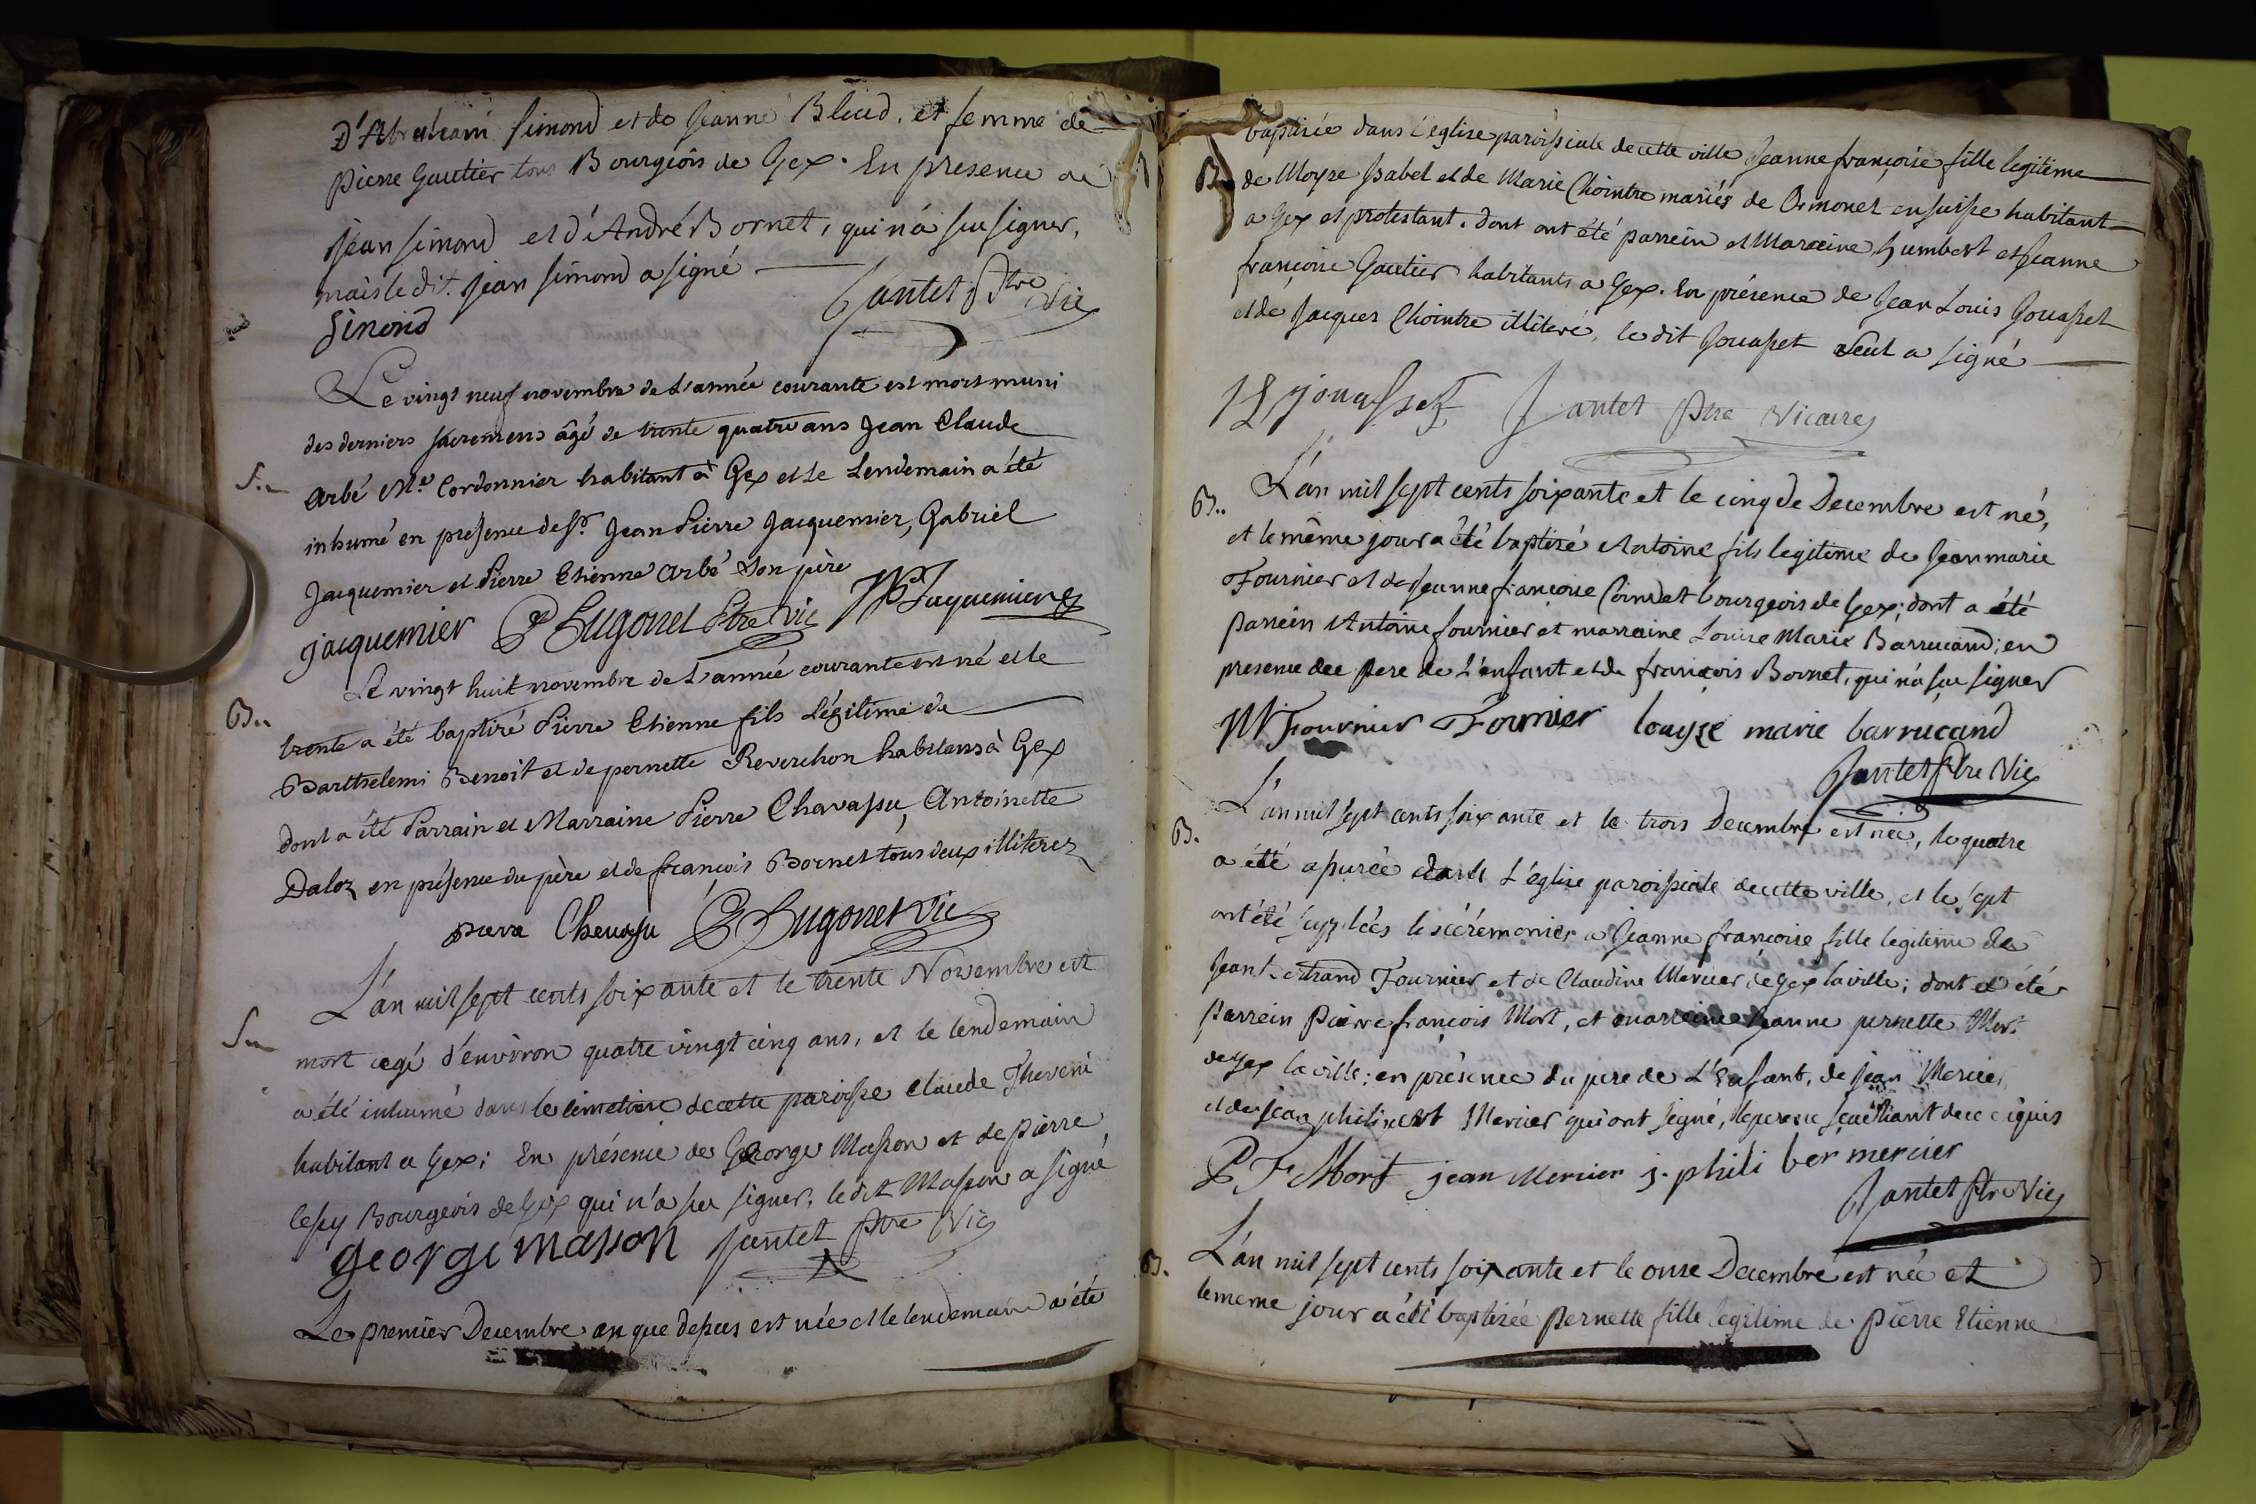 D'Abraham Simond et de Jeanne Blud, et femme de
pierre Gautier tous Bourgeois de Gex. En presence de
jean simond et d'André Bornet, qui n'a su signer,
mais le dit. jean simond a signé
Simond Jantet Ptre Vic
Le vingt neuf novembre de L'année courante est mort muni
des derniers sacremens âgé de trente quatre ans Jean Claude
S..
Arbé Me Cordonnier habitant à Gex et le Lendemain a été
inhumé en présence de Sr. Jean Pierre Jacquemier, Gabriel
Jacquemier et Pierre Etienne Arbé Son père
jacquemier P Hugonet Ptre Vic Jacquemier
Le vingt huit novembre de L'année courante est né et le
B..
trente a été baptizé Pierre Etienne fils Légitime de
Barthelemi Benoit et de pernette Reverchon habitans à Gex
dont a été Parrain et Marraine Pierre Chavassu, Antoinette
Daloz en présence du père et de françois Bornet tous deux illiterez
pierre Chevassu P Hugonet Vic
L'an mil sept cents soixante et le trente Novembre est
S..
mort agé d'environ quatre vingt cinq ans, et le lendemain
a été inhumé dans le cimetiere de cette paroisse claude Thevené
habitant a Gex; En présence de George Masson et de pierre
lespy Bourgeois de Gex qui n'a su signer, le dit Masson a signé
george masson Jantet Ptre Vic
Le premier Decembre an que depuis est née et le lendemain a été
baptisée dans l'eglise paroissiale de cette ville Jeanne françoise fille legitime
B..
de Moyse Isabel et de Marie Chointre mariés de Ormonet en suisse habitant
a Gex et protestant. dont ont été parrein et Marreine humbert et Jeanne
françoise Gautier habitants a Gex. En présence de Jean Louis Gouasset
et de Jacques Chointre illiteré, le dit Jouasset seul a signé
J L jouasset Jantet Ptre Vicaire
L'an mil sept cents soixante et le cinq de Decembre est né,
B..
et le même jour a été baptisé Antoine fils legitime de Jean marie
Fournier et de Jeanne françoise Poindet bourgeois de Gex; dont a été
parrein Antoine fournier et marreine Louise Marie Barrucand; en
presence du pere de L'enfant et de françois Bornet, qui n'a su signer
Fournier Fournier louyse marie barrucand
Jantet Ptre Vic
L'an mil sept cents soixante et le trois Decembre est née, le quatre
B.
a été apurée dans L'église paroissiale de cette ville, et le sept
ont été supplées les cérémonies a Jeanne françoise fille legitime de
Jean bertrand Fournier et de Claudine Mercier de Gex la ville; dont a été
Parrein Pierre françois Mort, et marreine Jeanne pernette Mort
de Gex la ville; en présence du pere de L'Enfant, de jean Mercier
et de jean philibert Mercier qui ont signé, le pere ne sçachant de ce enquis
P F Mort jean Mercier j. phili ber mercier
Jantet Ptre Vic
L'an mil sept cents soixante et le onze Decembre est née et
B.
le meme jour a été baptisée Pernette fille legitime de Pierre Etienne